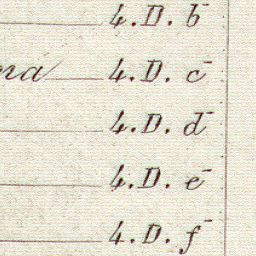 4.D. b-
na 4.D. c-
4.D. d-
4.D. e-
4.D. f-